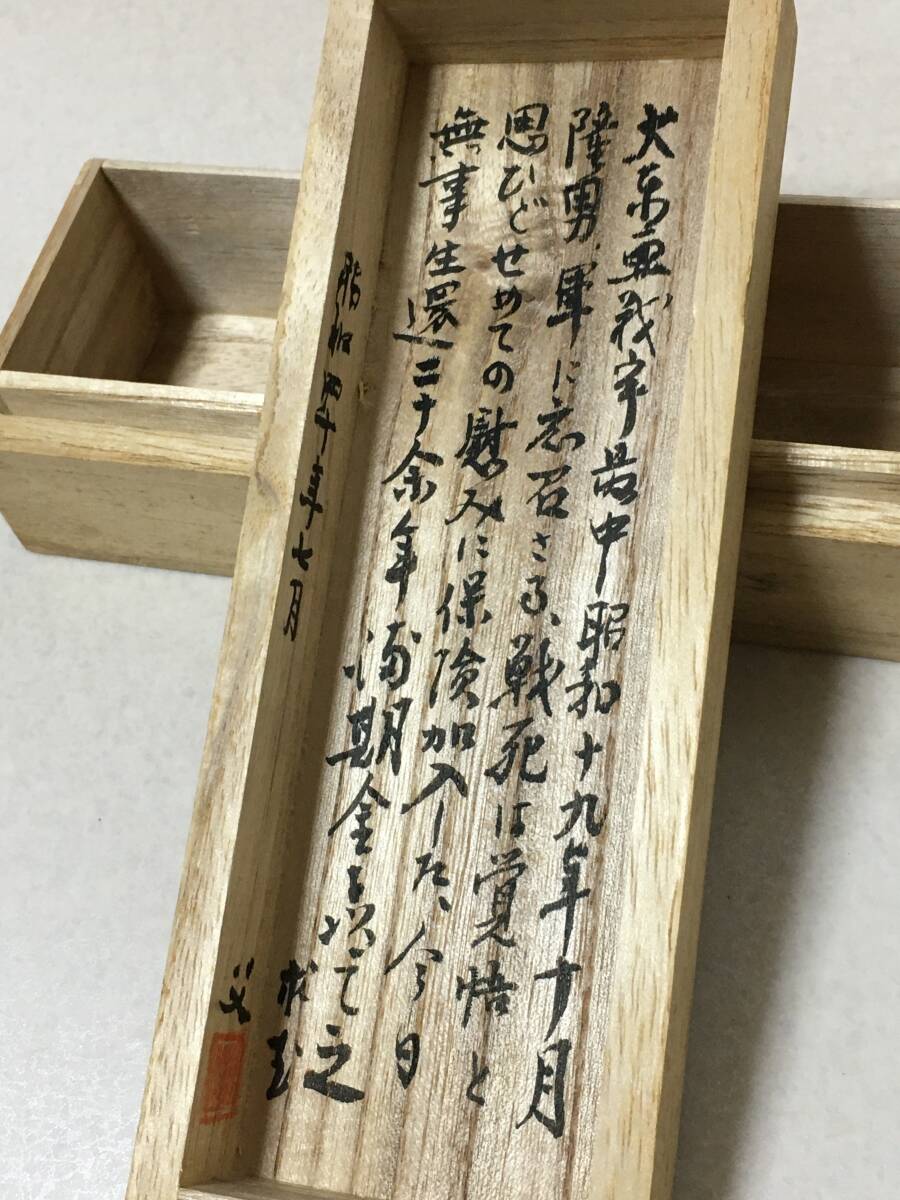 大東亜戦争最中昭和十九年十月
隆男、軍に応召さる、戦死は覚悟と
思ひどせめての慰みに保険加入した、今日
無事生還二十余年満期金を増て之
求む
昭和四十年七月
父